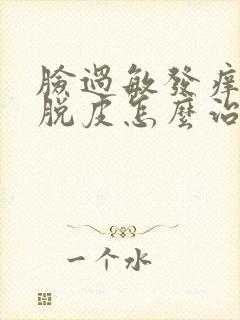 臉過敏發痒
脫皮怎麼治
一个水